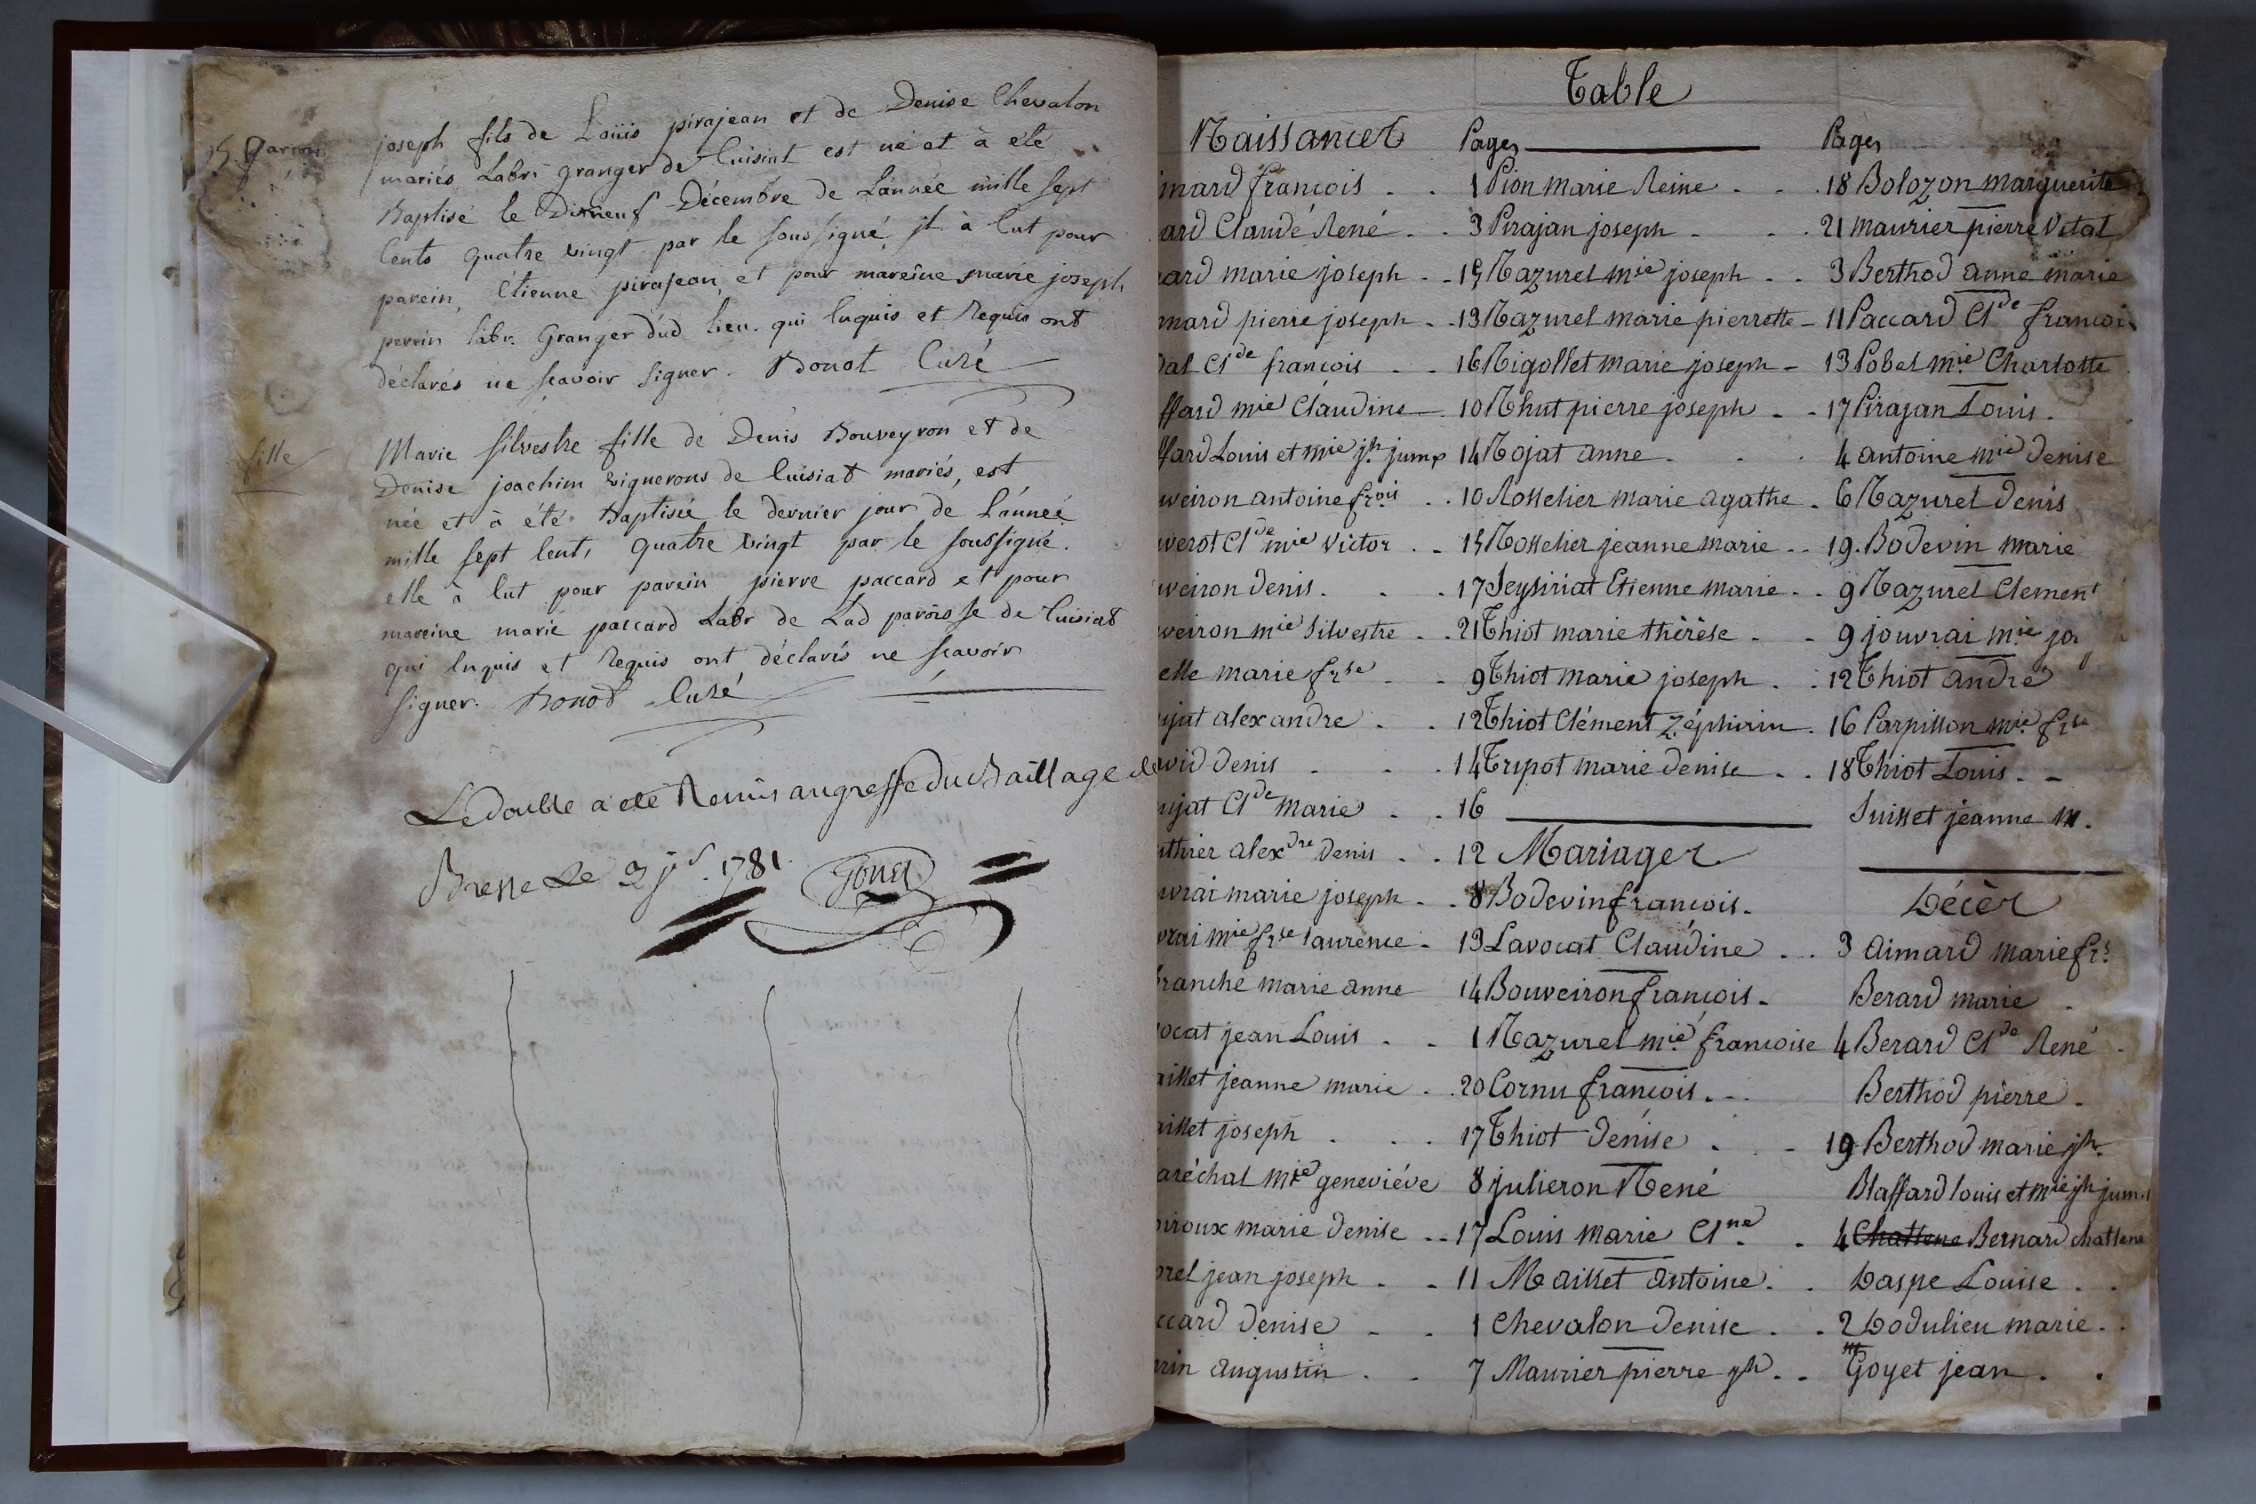 garçon
joseph fils de Loüis pirajean et de Denise Chevalon
mariés Labrs granger de Cuisiat est né et à été
Baptisé le Dixneuf Décembre de Lánnée mille sept
Cents quatre vingt par le soussigné, Jl à Eut pour
parein, étienne pirajean, et pour mareine marie joseph
perrin labr. Granger dud lieu. qui Enquis et Requis ont
déclarés ne sçavoir signer. Bonot Curé
fille
Marie Silvestre fille de Denis Bouveyron et de
Denise joachim vignerons de Cuisiat mariés, est
née et à été Baptisée le dernier jour de Lánneé
mille sept Cents quatre vingt par le soussigné.
elle à Eut pour parein pierre paccard et pour
mareine marie paccard Labr de Lad paroisse de Cuisiat
qui Enquis et Requis ont déclarés ne sçavoir
signer. Bonot Curé
Le double a été Remis au greffe du Baillage de
Bresse Le 2 jer. 1781
Table
Naissances Pages Pages
mard francois . . 1 Pion marie Reine . . 18 Bolozon marguerite
ard Claude René . . 3 Pirajan joseph . . 21 maurier pierre Vital
ard marie joseph . . 15 Razurel mie joseph . . 3 Berthod anne marie
mard pierre joseph . . 13 Razurel marie pierrette - 11 Paccard Clde francois
dat Clde francois . . 16 Rigollet marie joseph - 13 Pobel mie Charlotte
ffard mie Claudine 10 Rhut pierre joseph . . 17 Pirajan Louis .
ffard Louis et mie jh jump 14 Rojat anne . . . 4 antoine mie denise
uveiron antoine frois . . 10 Rosselier marie agathe . 6 Razurel Denis
uverot Clde mie Victor . . 15 Rosselier jeanne marie . . 19 . Bodevin marie
uveiron denis . . . 17 Seysiriat Etienne marie . . 9 Razurel Clement
uveiron mie Silvestre . . 21 Thiot marie thérèse . . 9 jouvrai mie jo
elle marie frse . . 9 Thiot marie joseph . . 12 Thiot andré
ujat alexandre . . 12 Thiot Clément Zéphirin . 16 Parpillon mie frse
avid denis . . . 14 Tripot marie denise . . 18 Thiot Louis . .
ujat Clde marie . . 16 Suisset jeanne m.
uthier alexdre denis . . 12 Mariages
uvrai marie joseph . . 8 Bodevin francois . Décès
vrai mie frse laurence . 13 Lavocat Claudine . . . 3 aimard marie frs
branche marie anne 14 Bouveiron francois . Berard marie .
ocat jean Louis . . 1 Razurel mie francoise 4 Berard Clde René .
aillet jeanne marie . . 20 Cornu francois . . . Berthod pierre .
aillet joseph . . . 17 Thiot denise . . 19 Berthod marie jh.
aréchal mie geneviéve 8 julieron René Blaffard louis et mie jh jum.
oiroux marie denise . . 17 Louis marie Clne . . 4 Chattene Bernard chattene
orel jean joseph . . 11 Maillet antoine . . Daspe Louise . .
ccard denise . . 1 Chevalon denise . . 2 Dodulieu marie . .
rrin augustin . . 7 Maurier pierre jh . . Goyet jean . .